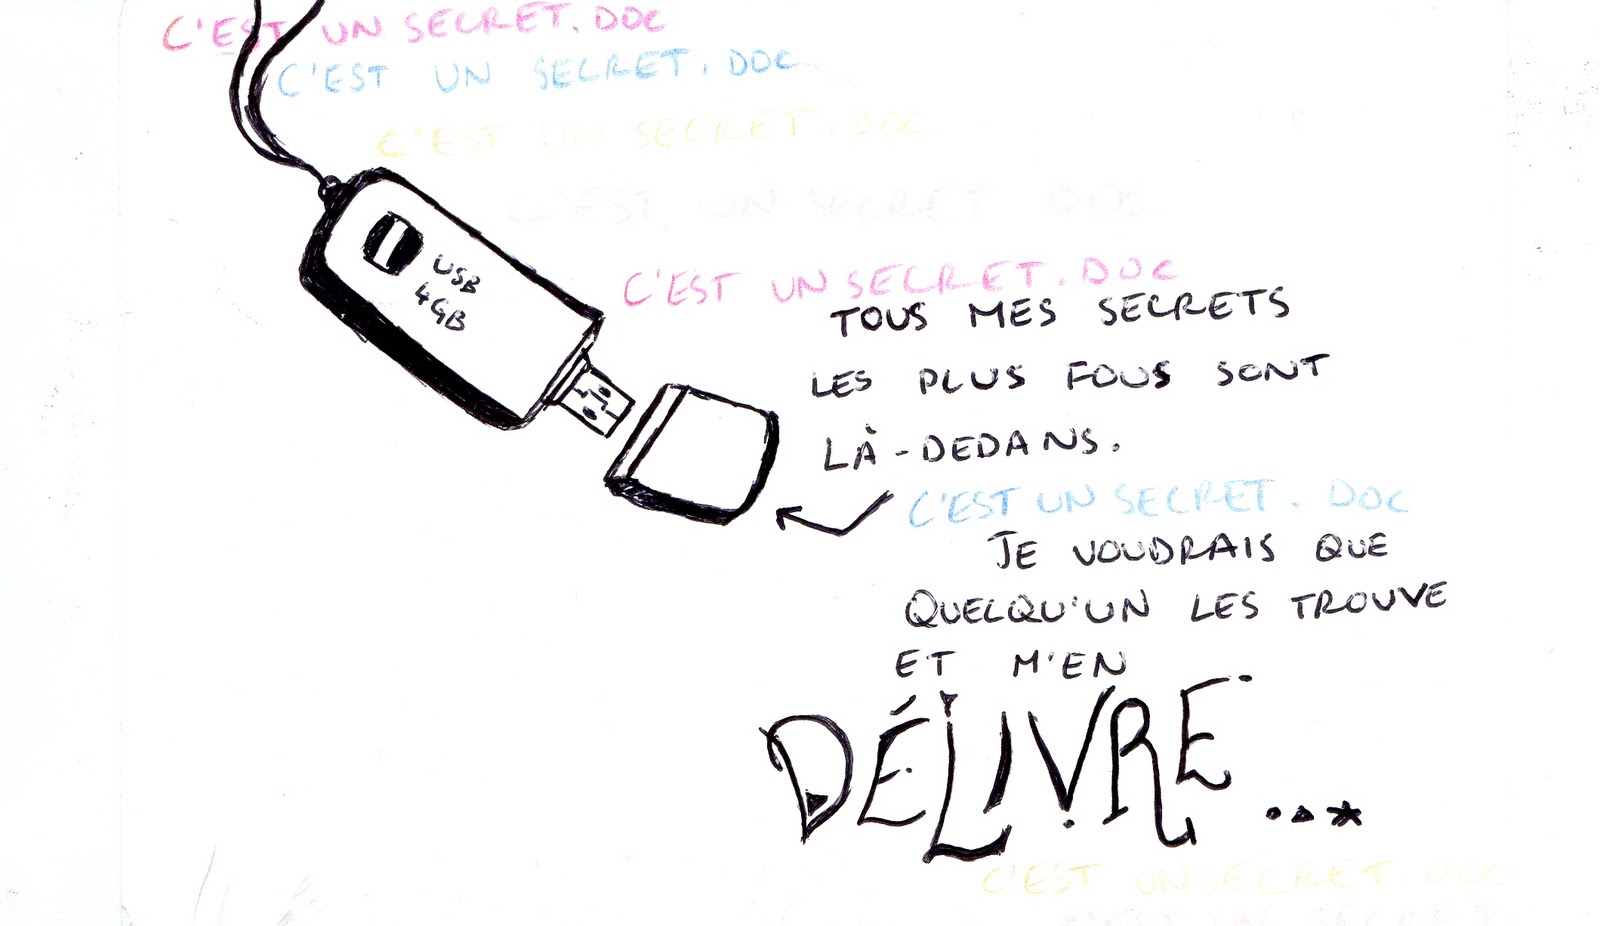 C'EST UN SECRET.DOC
C'EST UN SECRET.DOC
C'EST UN SECRET.DOC
C'EST UN SECRET DOC
USB
4GB
C'EST UN SECRET.DOC
TOUS MES SECRETS
LES PLUS FOUS SONT
LÀ-DEDANS.
C'EST UN SECRET.DOC
JE VOUDRAIS QUE
QUELQU'UN LES TROUVE
ET M'EN
DÉLIVRE...*
C'EST UN SECRET.DOC
C'EST UN SECRET